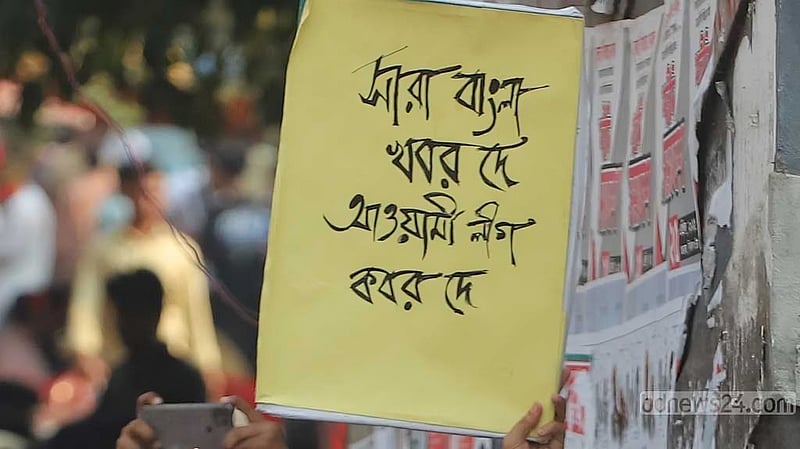 সারা বাংলা
খবর দে
আওয়ামী লীগ
কবর দে
bcnews24.com